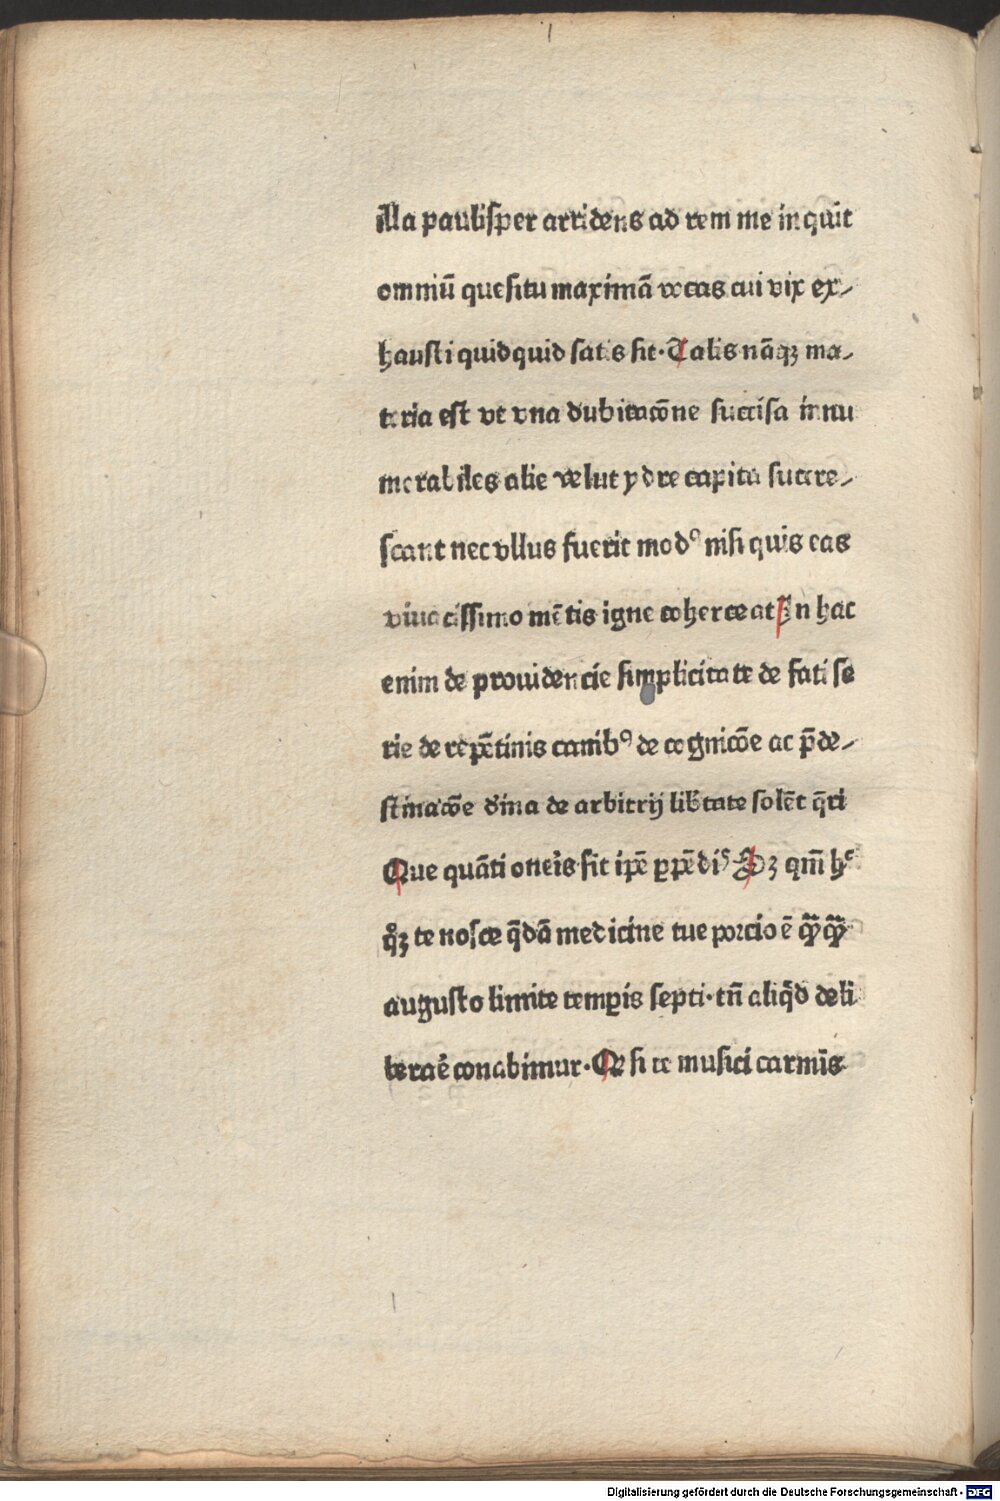 illa paulisper arridens ad rem me inquit
omniū quesitu maximā vocas cui vix ex-
hausti quidquid satis sit · Talis nāqꝫ ma-
teria est vt vna dubitacōne succisa innu
merabiles alie velut ydre capita succre-
scant nec vllus fuerit modꝰ nisi quis eas
viuacissimo mētis igne coherceat In hac
enim de prouidencie simplicitate de fati se
rie de repētinis casibꝰ de cognicōe ac p̄de-
stinacōe diīna de arbitrij lib̄tate solēt q̄ri
Que quāti oneris sit ip̄e ꝑpēdis Sꝫ qm̄ hᶜ
qͦꝫ te nosce q̄dā medicine tue porcio ē qꝫqꝫ
augusto limite temꝑis septi · tn̄ aliqͥd deli
beraē conabimur · Qͩ si te musici carmīs
Digitalisierung gefördert durch die Deutsche Forschungsgemeinschaft · DFG